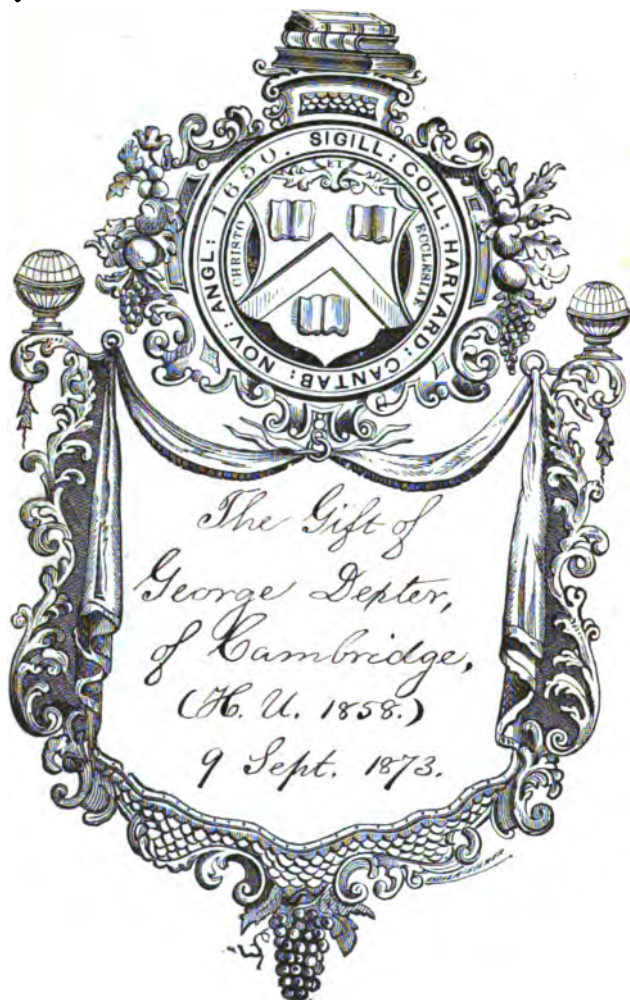 SIGILL: COLL: HARVARD: CANTAB: NOV: ANGL: 1650.
CHRISTO
ET
ECCLESIÆ
The Gift of
George Dexter,
of Cambridge,
(H. U. 1858.)
9 Sept. 1873.